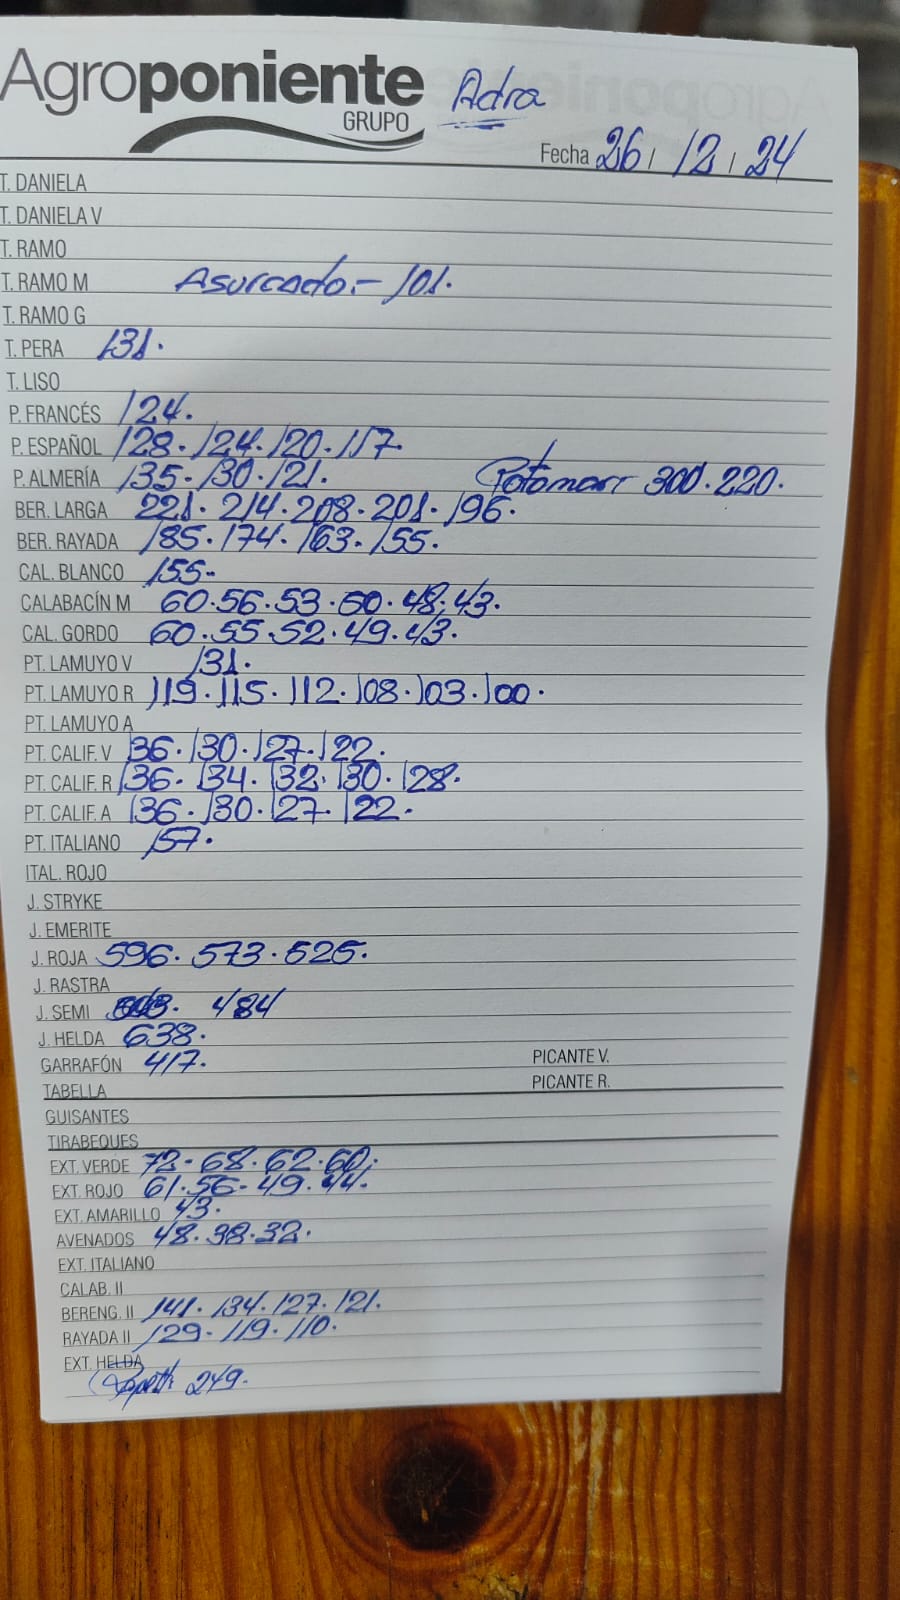 Agroponiente Adra
GRUPO
Fecha 26 / 12 / 24
T. DANIELA
T. DANIELA V
T. RAMO
T. RAMO M Asurcado.- 101.
T. RAMO G
T. PERA 131.
T. LISO
P. FRANCÉS 124.
P. ESPAÑOL 128. 124. 120. 117.
P. ALMERÍA 135. 130. 121. 300. 220.
BER. LARGA 221. 214. 208. 201. 196.
BER. RAYADA 185. 174. 163. 155.
CAL. BLANCO 155.
CALABACÍN M 60. 56. 53. 50. 48. 43.
CAL. GORDO 60. 55. 52. 49. 43.
PT. LAMUYO V 131.
PT. LAMUYO R 119. 115. 112. 108. 103. 100.
PT. LAMUYO A
PT. CALIF. V 136. 130. 127. 122.
PT. CALIF. R 136. 134. 132. 130. 128.
PT. CALIF. A 136. 130. 127. 122.
PT. ITALIANO 157.
ITAL. ROJO
J. STRYKE
J. EMERITE
J. ROJA 596. 573. 525.
J. RASTRA
J. SEMI 484
J. HELDA 638.
GARRAFÓN 417. PICANTE V.
TABELLA PICANTE R.
GUISANTES
TIRABEQUES
EXT. VERDE 72. 68. 62. 60.
EXT. ROJO 61. 56. 49. 44.
EXT. AMARILLO 43.
AVENADOS 48. 38. 32.
EXT. ITALIANO
CALAB. II
BERENG. II 141. 134. 127. 121.
RAYADA II 129. 119. 110.
EXT. HELDA
249.